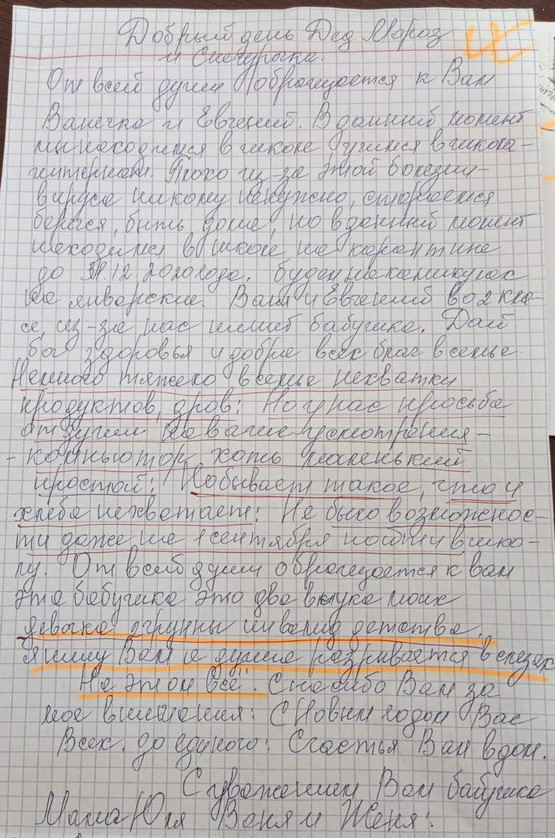 Добрый день Дед Мороз
и Снегурочка.
От всей души оброщается к Вам
Ванечка и Евгений. В данный момент
мы находимся в школе учимся в школа-
интернат. Плохо из-за этой болезни-
вируса никому ненужно, стараемся
беречся, быть дома, но в данный момент
находимся в школе на карантине
до 12.2020 года. будем на каникулах
на январские. Ваня и Евгений во 2 кла-
се, из-за нас пишет бабушка. Дай
бог здоровья и добра всех благ в семье.
Немного тяжело в семье нехватки
продуктов, дров: Но у нас просьба
от души на ваше усмотрения-
- компьютор хоть маленький
простой: Но бывает такое, что и
хлеба нехватает: Не было возможнос-
ти даже на 1 сентября пойти в шко-
лу. От всей души оброщается к вам
это бабушка это два внука моих
2 группы инвалид детства,
я пишу Вам а душа разрывается в слезах
На этом всё. Спасибо Вам за
мое внимания: С Новым годом Вас
Всех. до единого: Счастья Вам в дом.
С уважением Вам бабушка
Мама Юля Ваня и Женя: